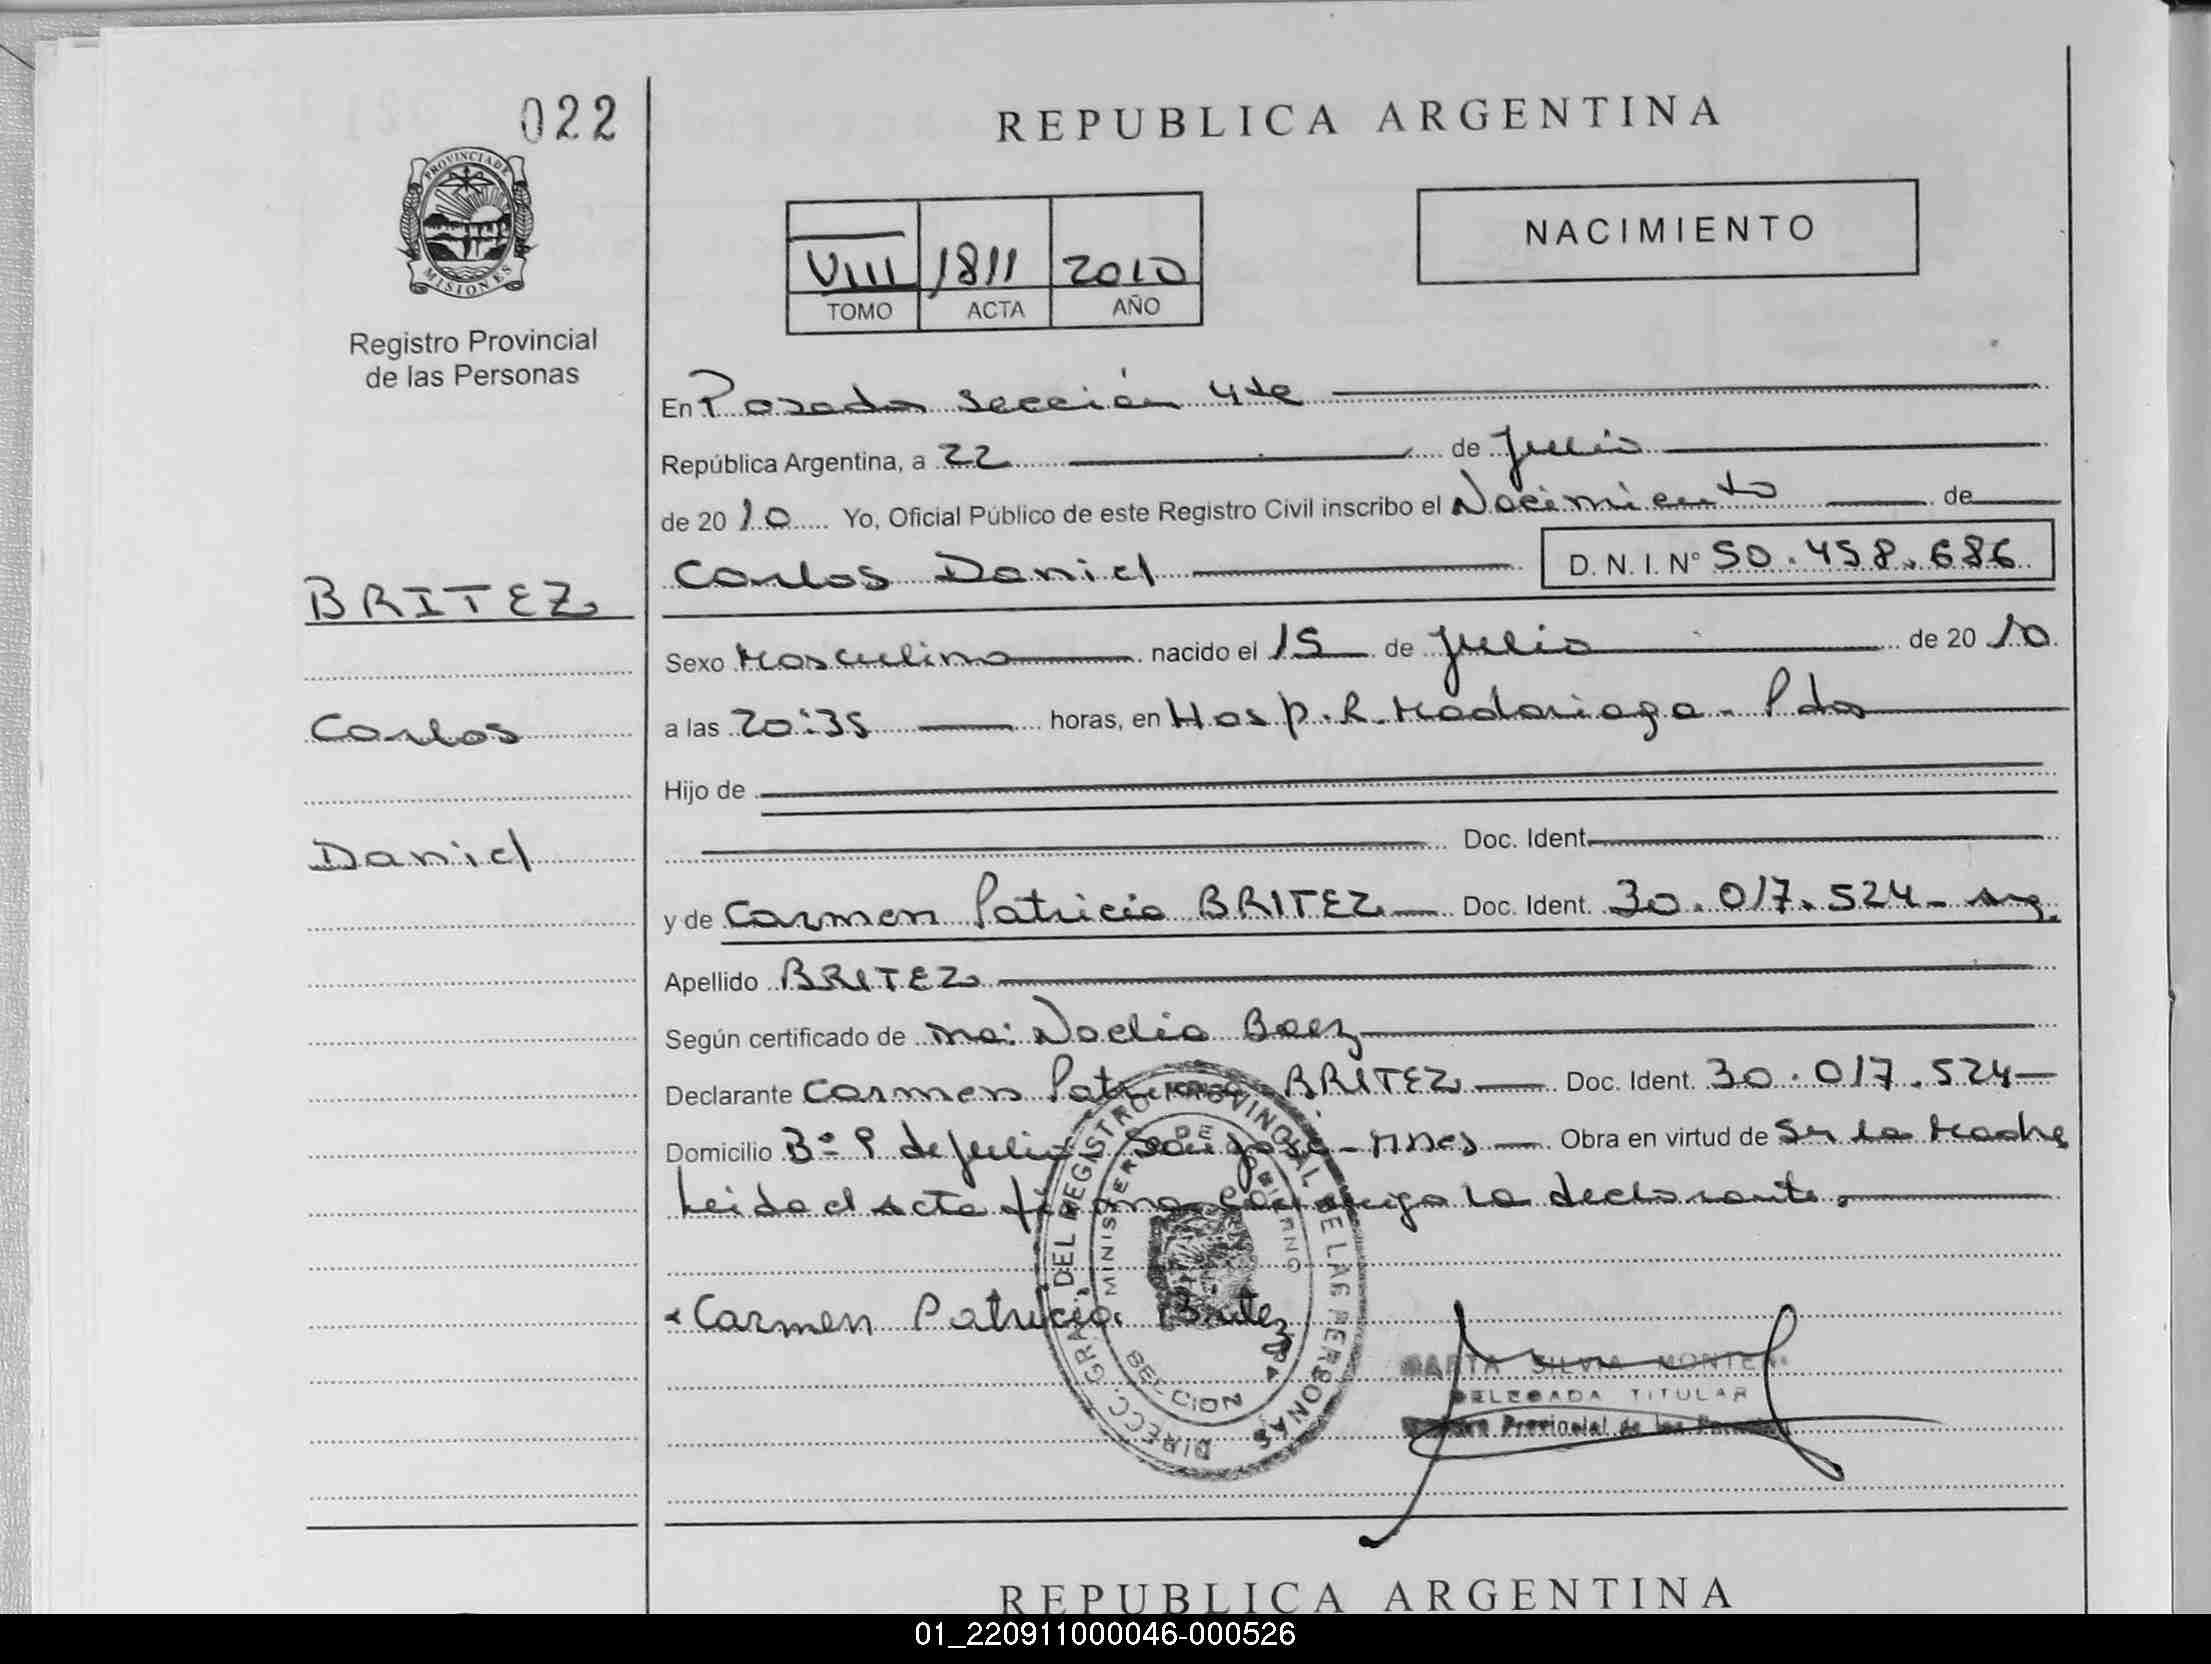 022
REPUBLICA ARGENTINA
PROVINCIA DE
MISIONES
Registro Provincial
de las Personas
VIII 1811 2010
TOMO ACTA AÑO
NACIMIENTO
En Posadas sección 4ta
República Argentina, a 22 de Julio
de 2010 Yo, Oficial Público de este Registro Civil inscribo el Nacimiento de
Carlos Daniel D. N. I. N° 50.458.686
BRITEZ
Carlos
Daniel
Sexo Masculino nacido el 15 de Julio de 2010
a las 20:35 horas, en Hosp. R. Madariaga - Pdas
Hijo de
Doc. Ident.
y de Carmen Patricia BRITEZ Doc. Ident. 30.017.524 - arg.
Apellido BRITEZ
Según certificado de Noelia Baez
Declarante Carmen Patricia BRITEZ Doc. Ident. 30.017.524
Domicilio B° 9 de Julio San José - Mnes Obra en virtud de Ser la Madre
Leida el acta firma conmigo la declarante.
Carmen Patricia Britez
DIRECC. GRAL. DEL REGISTRO PROVINCIAL DE LAS PERSONAS
MINISTERIO DE GOBIERNO
SILVIA
DELEGADA TITULAR
Provincial de las
REPUBLICA ARGENTINA
01_220911000046-000526